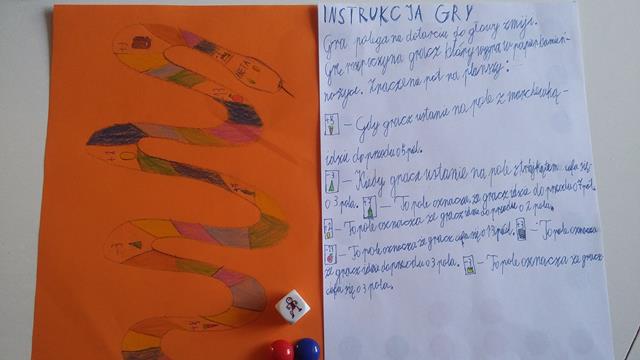 INSTRUKCJA GRY
Gra polega na dotarciu do głowy żmije.
Grę rozpoczyna gracz który wygra w papier kamień-
nożyce. Znaczenie pól na planszy:
- Gdy gracz ustanie na pole z marchewką -
idzie do przodu o 5 pól.
- Kiedy gracz ustanie na pole z trójkątem cofa się
o 3 pola. - To pole oznacza, że gracz idzie do przodu o pól.
- To pole oznacza że gracz idzie do przodu o 2 pola.
- To pole oznacza że gracz cofa się o 13 pól. - To pole oznacza
że gracz idzie do przodu o 3 pola. - To pole oznacza że gracz
cofa się o 3 pola.
META